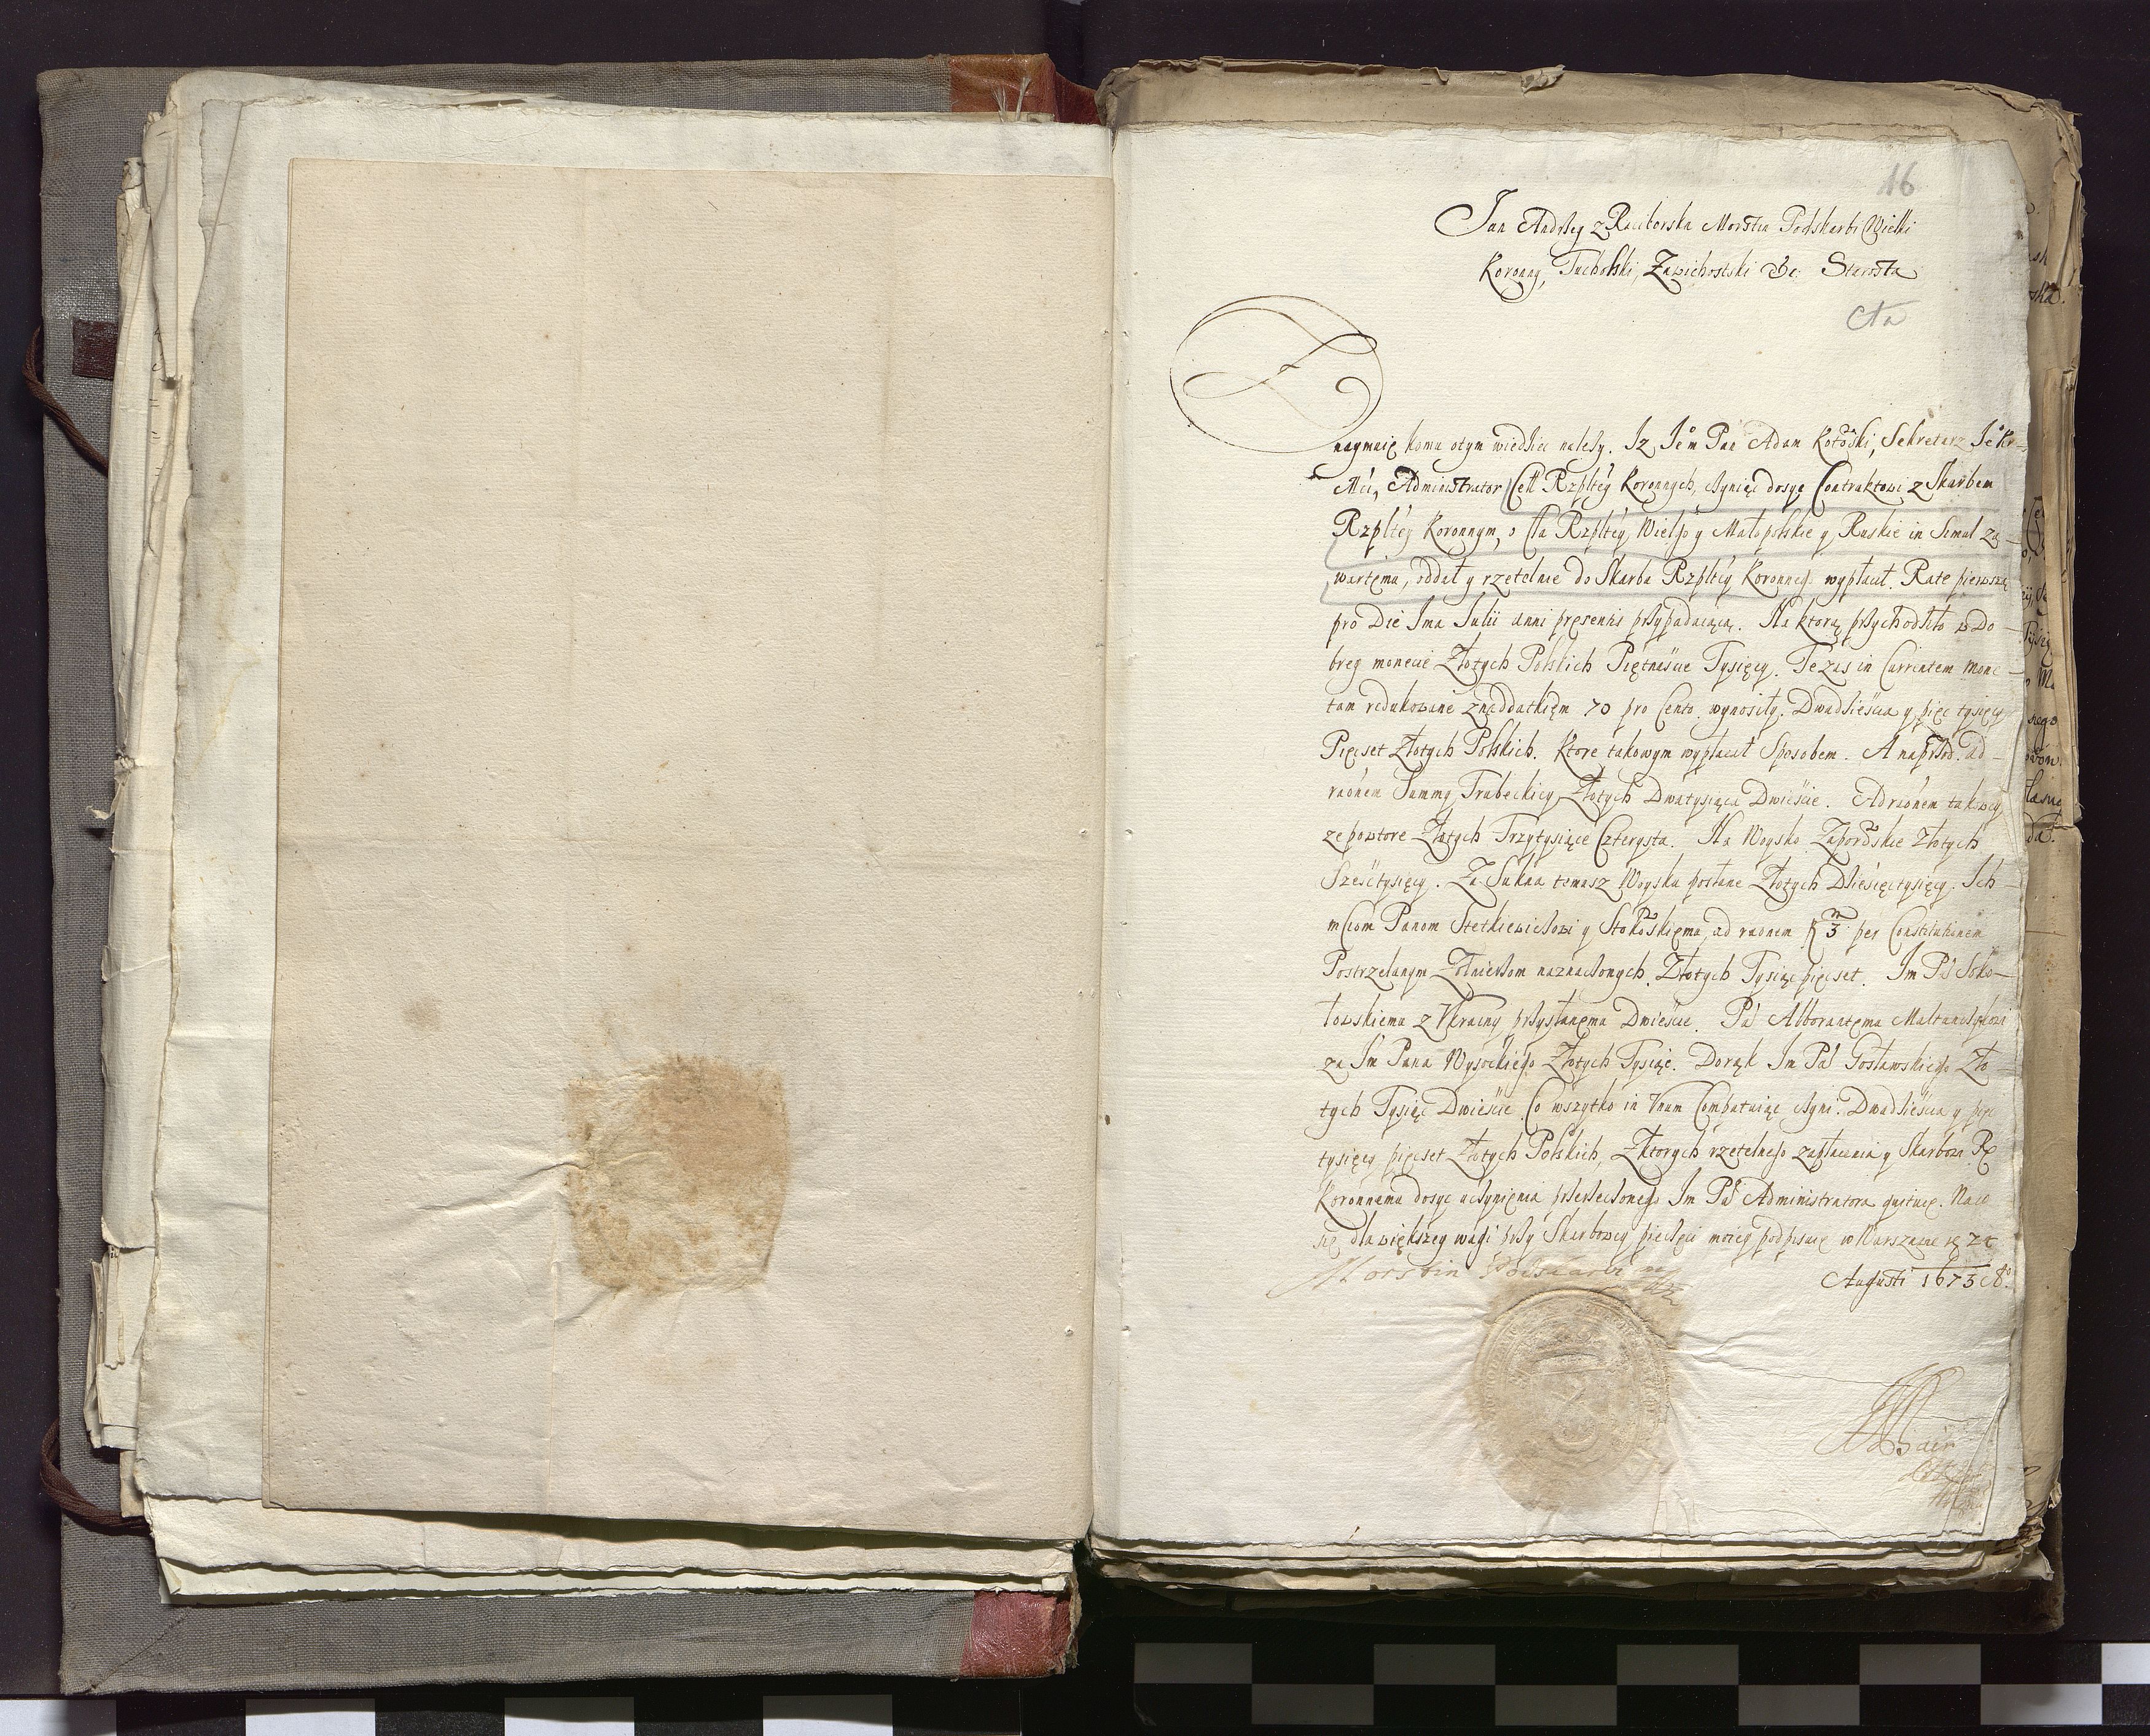 16
Jan Andrzey z Raciborska Morstin Podskarbi Wielki
Koronny, Tucholski, Zawichostski &c: Starosta
Cła
Znaymuię komu otym wiedzieć należy. Iz Jeo Pan Adam Kotoski, Sekretarz JeKr
Mci, Administrator Cełł Rzpltey Koronnych, czyniąc dosyć Contraktowi z Skarbem
Rzpltey Koronnym, o Cła Rzpltey Wielgo y Małopolskie y Ruskie in Simul za-
wartemu, oddał y rzetelnie do Skarbu Rzpltey Koronnego wypłacił. Rate pierwszą
pro Die Ima Julii anni presentis przypadaiącą. Na ktorą przychodziło w Do-
brey monecie Złotych Polskich Piętnaście Tysięcy. Te zas in Currentem mone-
tam redukowane znaddatkiem 70 pro Cento wynosiły. Dwadzieścia y pięc tysięcy
Pięcset Złotych Polskich. Ktore takowym wypłacił Sposobem. A naprzod. ad
raonem Summy Trubeckiey Złotych Dwatysiąca Dwieście. Ad raonem takowey
ze powtore Złotych Trzytysiące Czterysta. Na Woysko Zaporoskie Złotych
Sześćtysięcy. Za Sukna temusz Woysku posłane Złotych Dziesięctysięcy. Ich
mCiom Panom Stetkiewiczowi y Stokoskiemu, ad raonem 3 per Constitutionem
Postrzelanym Zołnierzom naznaczonych. Złotych Tysiąc pięcset. Im Pu Soko-
łowskiemu z Vkrainy przysłanemu Dwieście. Pu Alborantemu Multanczykowi
za Im Pana Wysockiego Złotych Tysiąc. Dorąk Im Pa Gosławskiego Zło-
tych Tysiąc Dwieście. Co wszytko in Vnum Computuiąc czyni. Dwadzieścia y pięc
tysięcy pięcset Złotych Polskich, Zktorych rzetelnego zapłacenia y Skarbowi R
Koronnemu dosyc uczynienia przerzeczonego Im Pa Administratora quituię. Na co
się dla większey wagi przy Skarbowey pieczęci moiey podpisuię w Warszawie
Augusti 1673 Ao.
Morstin Podskarbi